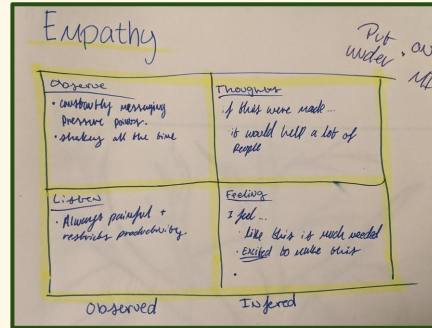 Empathy
Put
under • on
Observe
• constantly messaging
pressure points.
• shakey all the time
Thoughts
If this were made...
it would help a lot of
people
Listen
• Always painful +
restricts productivity.
Feeling
I feel...
• like this is much needed
• Excited to make this
•
Observed
Infered